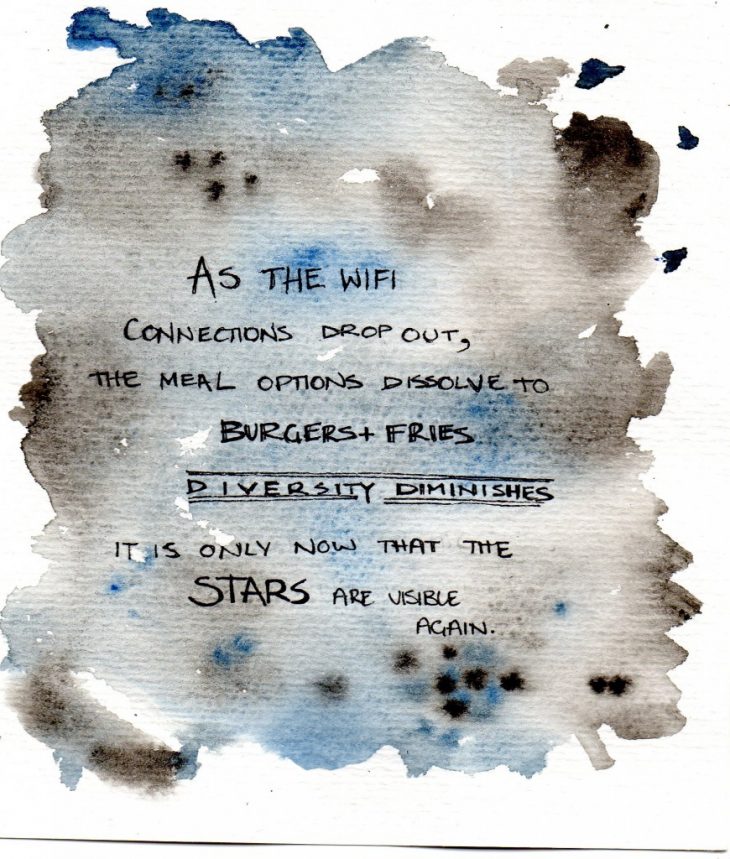 AS THE WIFI
CONNECTIONS DROP OUT,
THE MEAL OPTIONS DISSOLVE TO
BURGERS + FRIES
DIVERSITY DIMINISHES
IT IS ONLY NOW THAT THE
STARS ARE VISIBLE
AGAIN.